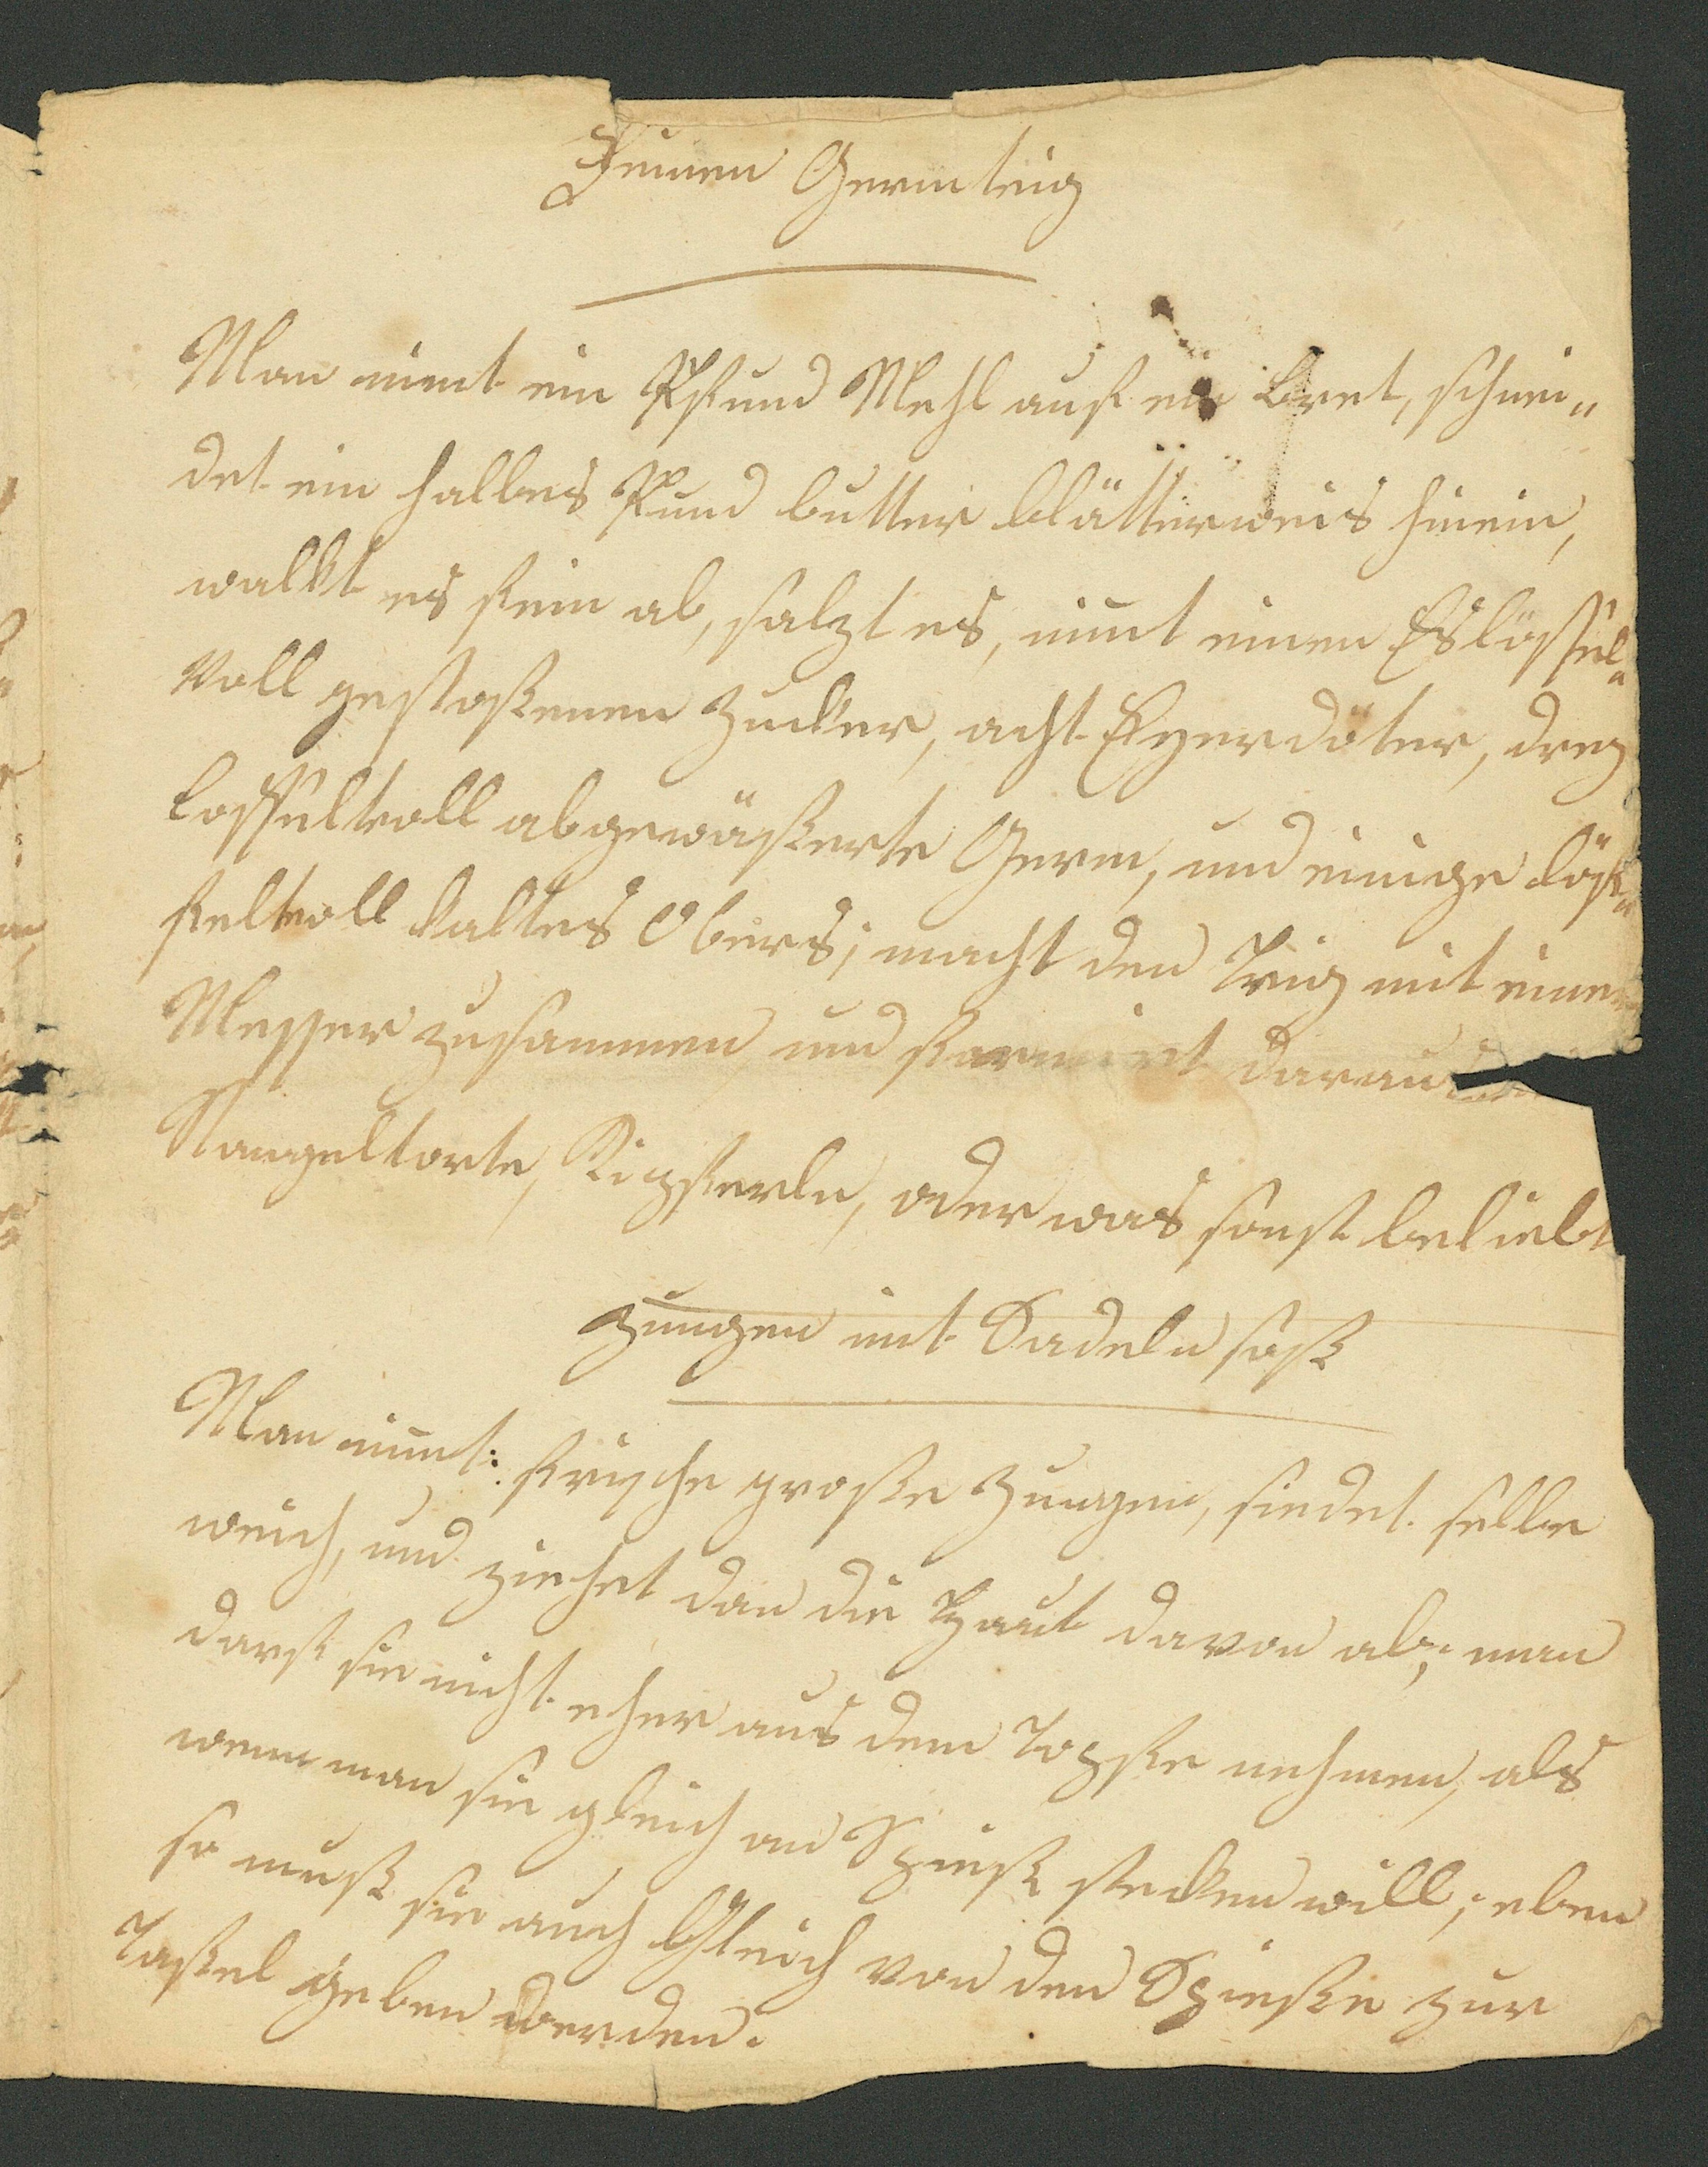 Feinen Germteig
Man nimt ein Pfund Mehl auf ein Bret, schnei„
det ein halbes Pfund butter blätterweis hinein,
walkt es fein ab, salzt es, nimt einen Eslöffel„
Voll gestoßenen Zucker, acht Eyerdöter, drey
Loffelvoll abgewäßerte Germ, und einige Löf„
felvoll kaltes Obers; macht den Teig mit einem
Messer zusammen und formirt daraus
Stangeltorte, Kipferln, oder was sonst beliebt
Zungen mit Sadeln soß
Man nimt: frische große Zungen, siedet selbe
weich, und ziehet dan die Haut davon ab; man
darf sie nicht eher aus dem Topfe nehmen, als
wenn man sie gleich an Spieß stecken will; eben
so muß sie auch Gleich von den Spieße zur
Taffel geben werden.